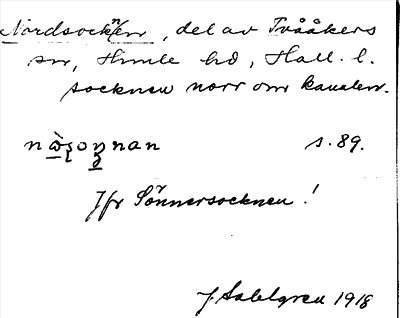 Nordsocknen, del av Tvååkers
sn, Himle hd, Hall. l.
socknen norr om kanalen.
s. 89.
Jfr Sönnersocknen!
J. Sahlgren 1918